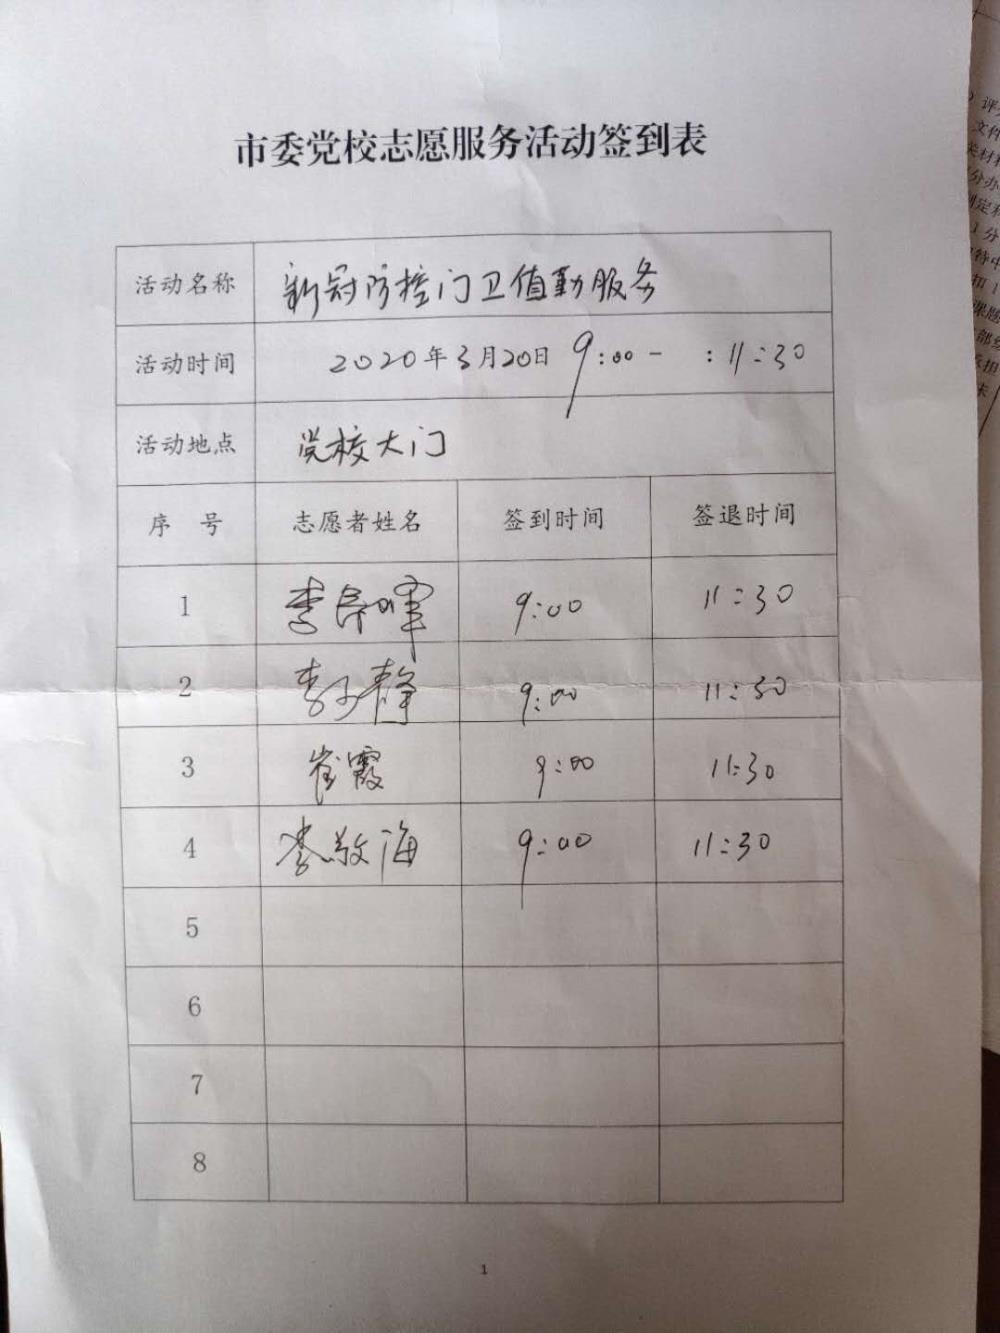 市委党校志愿服务活动签到表
活动名称 新冠防控门卫值勤服务
活动时间 2020年3月20日 9:00- :11:30
活动地点 党校大门
序 号 志愿者姓名 签到时间 签退时间
1 9:00 11:30
2 李子静 9:00 11:30
3 崔霞 9:00 11:30
4 李敬海 9:00 11:30
5
6
7
8
1